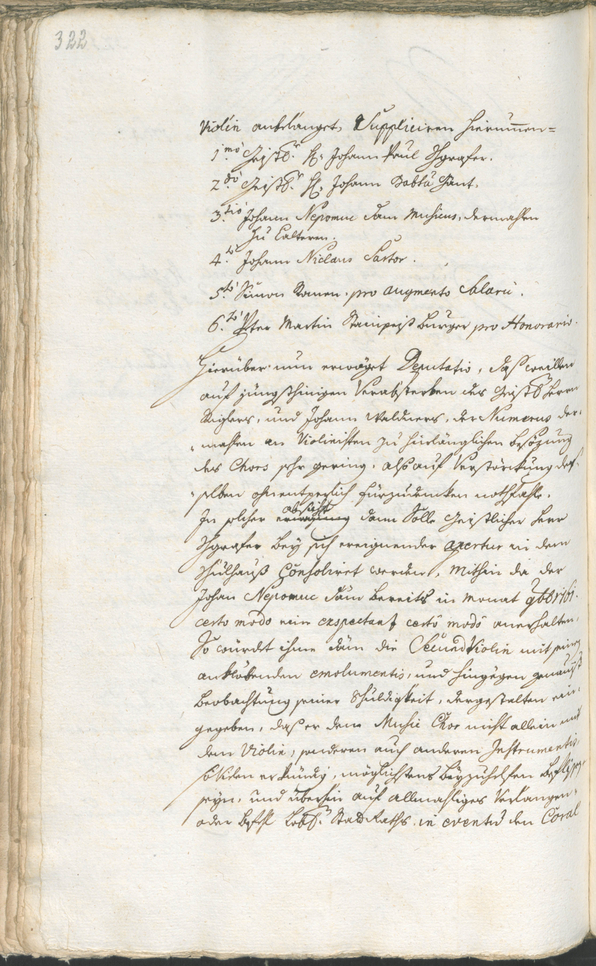 322
Violin anbelanget, Suppliciren hierumen=
1mo Geistl.r H. Johann Paul Schgraser.
2do Geistl.r H. Johann Babta Gänt.
3tio Johann Nepomuc Dam Musicus, dermahlen
zu Caltern.
4to Johann Niclaus Sartor.
5to Simon Romen. pro augmento Salarii.
6to Peter Martin Burger pro Honorario.
Hierüber nun erwöget Deputatio, das weillen
auf jüngsthinigen Verabsterben des Geistl. Herrn
und Johann Waldners, der Numerus der=
mahlen an Violinisten zu hinlänglichen besözung
des Chors sehr gering, also auf Verstörckung des=
selben ohnentgerlich fürzudencken nothfahle.
In solcher absicht dann Solle Geistlicher Herr
Schgraser bey sich ereignender apertur in dem
Schulhaus Consoliret werden, Mithin da der
Johan Nepomuc Dam bereits in monat 9bris
certo modo ein exspectanz certo modo anerhalten,
So wurdet ihme Dam die Secund Violin mit
anklebenden emolumentis, und hingegen genauist
beobachtung seiner Schuldigkeit, dergestalten ein=
gegeben, das er dem Music Chor nicht allein mit
dem Violin, sonderen auch anderen Instrumentis,
so er kündig, möglichstens beyzuhelfen
seyn, und überhin auf allmahliges Verlangen,
oder Befehl Lobl. Stadt Raths in eventu den Coral